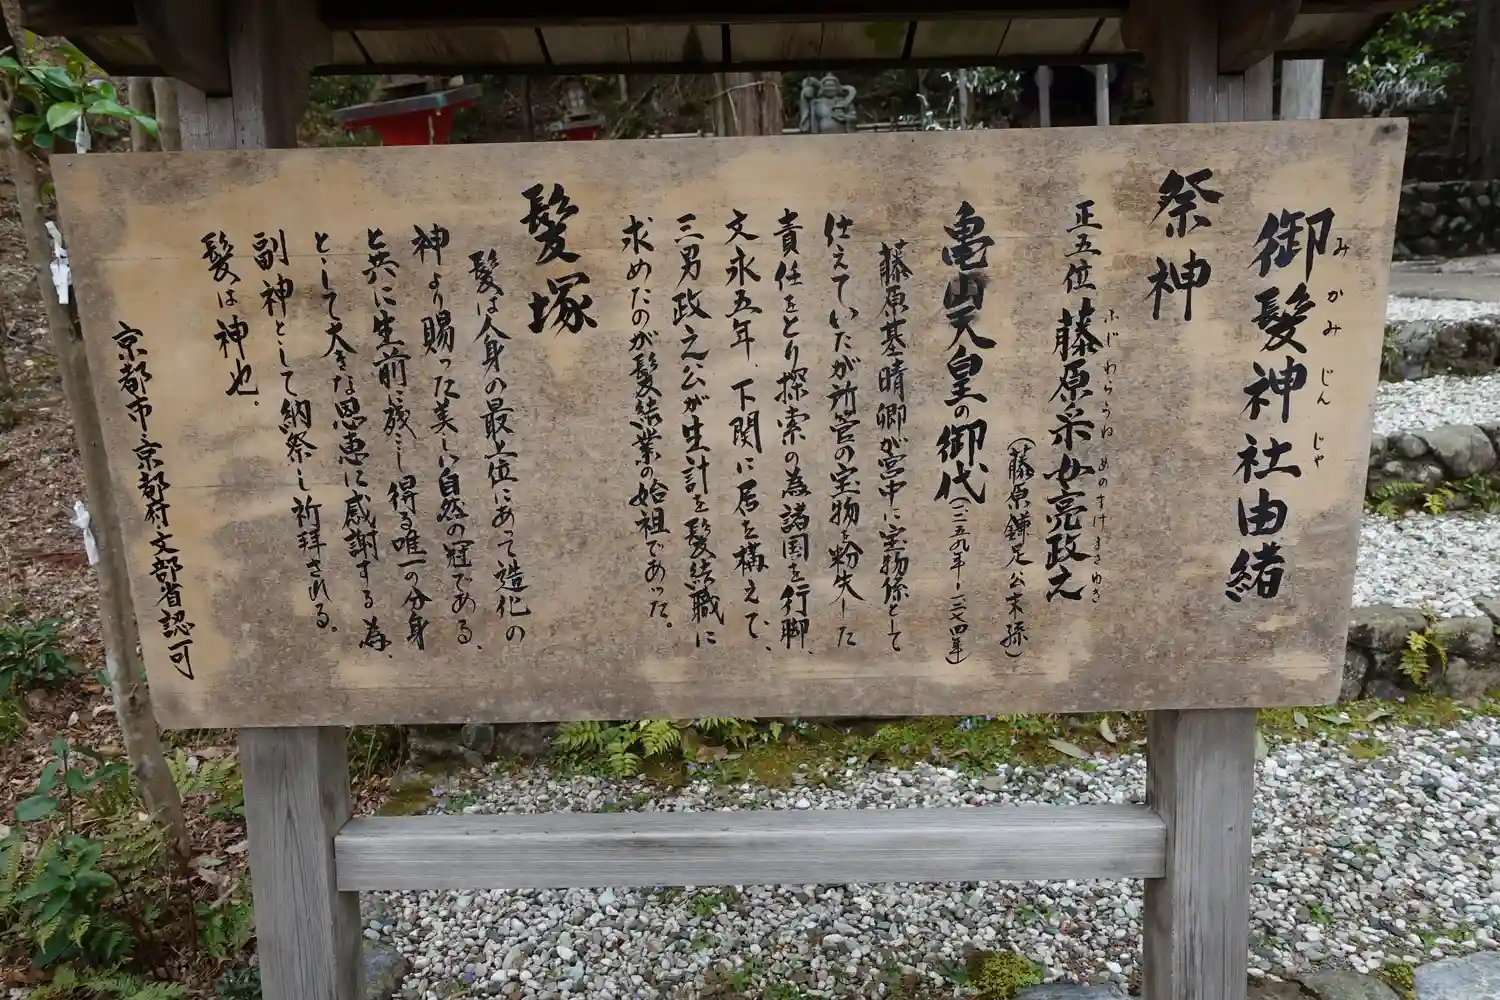 御髪神社由緒
みかみじんじゃ
祭神
正五位 藤原采女亮政之
ふじわらうねめのすけまさゆき
(藤原鎌足公末孫)
亀山天皇の御代(一二五九年・一二七四年)
藤原基晴卿が宮中に宝物係として
仕えていたが所管の宝物を粉失した
責任をとり探索の為諸国を行脚、
文永五年、下関に居を構えて、
三男政之公が生計を髪結職に
求めたのが髪結業の始祖であった。
髪塚
髪は人身の最上位にあって造化の
神より賜った美しい自然の冠である、
と共に生前に残こし得る唯一の分身
として大きな恩恵に感謝する為、
副神として納祭し祈拝される。
髪は神也。
京都市・京都府・文部省認可